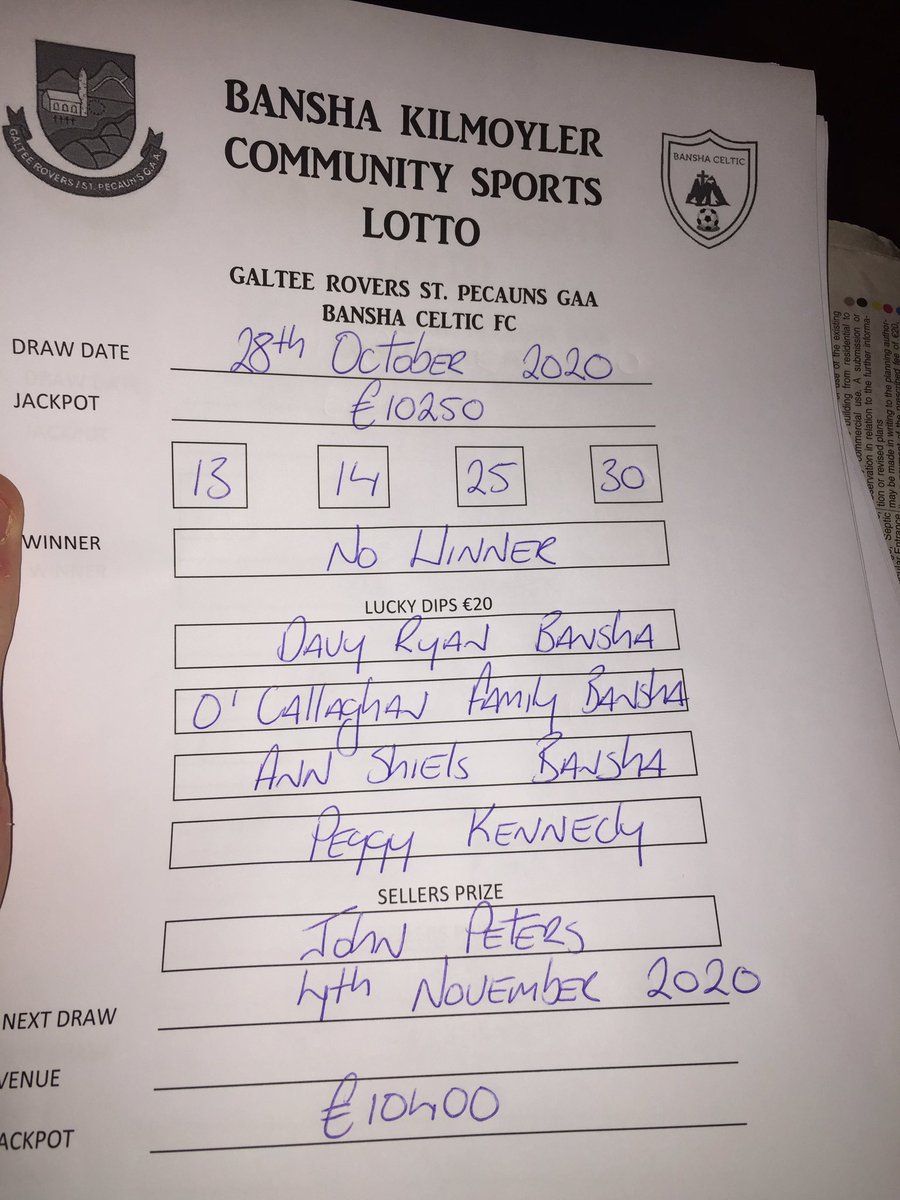 BANSHA KILMOYLER
COMMUNITY SPORTS
LOTTO
GALTEE ROVERS / ST. PECAUNS G.A.A
BANSHA CELTIC
GALTEE ROVERS ST. PECAUNS GAA
BANSHA CELTIC FC
DRAW DATE 28th October 2020
JACKPOT €10250
13 14 25 30
WINNER No Winner
LUCKY DIPS €20
Davy Ryan Bansha
O' Callaghan Family Bansha
Ann Shiels Bansha
Peggy Kennedy
SELLERS PRIZE
John Peters
NEXT DRAW 4th November 2020
VENUE
ACKPOT €10400
of the existing
building from residential to
commercial use. A submission or
observation in relation to the further informa-
tion or revised plans
may be made in writing to the planning author-
prescribed fee of €20,
Septic